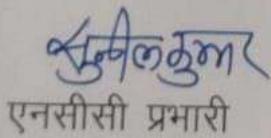 सुनीलकुमार
एनसीसी प्रभारी